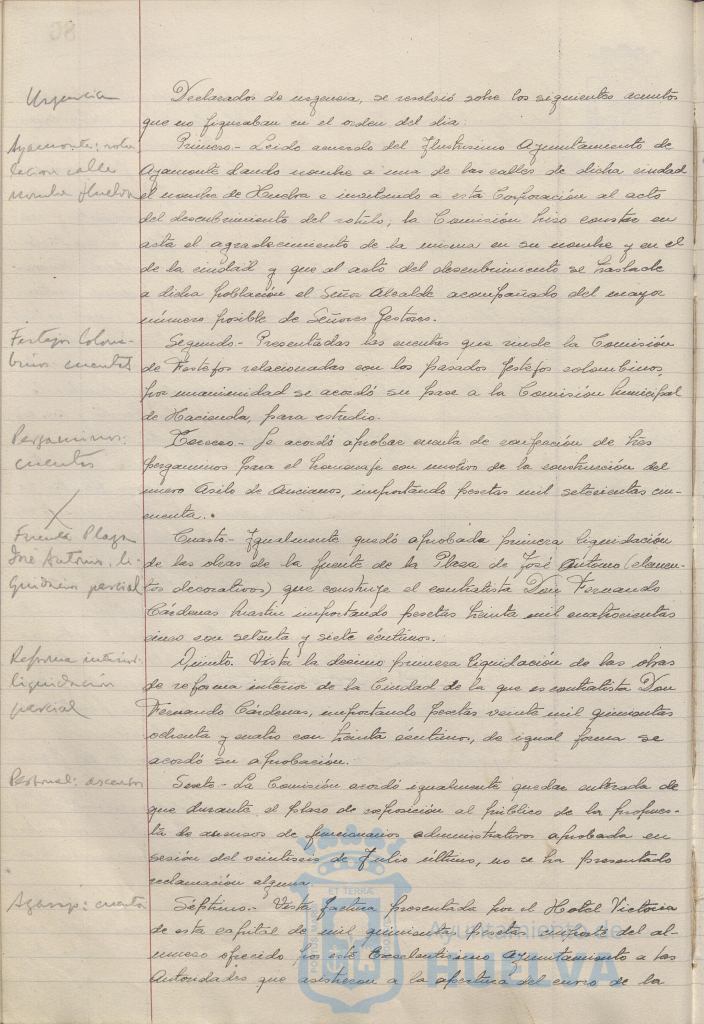 Urgencia
Declarados de urgencia, se resolvió sobre los siguientes asuntos
que no figuraban en el orden del dia:
Ayamonte: rotu-
lacion calle
nombre Huelva
Primero.- Leido acuerdo del Ilustrisimo Ayuntamiento de
Ayamonte dando nombre a una de las calles de dicha ciudad
el nombre de Huelva e invitando a esta Corporación al acto
del descubrimiento del rotulo, la Comisión hizo constar en
acta el agradecimiento de la misma en su nombre y en el
de la ciudad y que al acto del descubrimiento se traslade
a dicha población el Señor Alcalde acompañado del mayor
número posible de Señores Gestores.
Festejos Colom-
binos cuentas
Segundo.- Presentadas las cuentas que rinde la Comisión
de Festejos relacionadas con los pasados festejos colombinos,
por unanimidad se acordó su pase a la Comisión Municipal
de Hacienda, para estudio.
Pergaminos:
cuentas
Tercero.- Se acordó aprobar cuenta de confección de tres
pergaminos para el homenaje con motivo de la construcción del
nuevo Asilo de Ancianos, importando pesetas mil setecientas cin-
cuenta.
X
Fuente Plaza
José Antonio, li-
quidacion parcial
Cuarto.- Igualmente quedó aprobada primera liquidación
de las obras de la fuente de la Plaza de José Antonio (elemen-
tos decorativos) que construye el contratista Don Fernando
Cárdenas Martin importando pesetas treinta mil cuatrocientas
cinco con setenta y siete céntimos.
Reforma interior:
liquidación
parcial
Quinto. Vista la decimo primera liquidación de las obras
de reforma interior de la Ciudad de la que es contratista Don
Fernando Cárdenas, importando pesetas veinte mil quinientas
ochenta y cuatro con treinta céntimos, de igual forma se
acordó su aprobación.
Personal: ascensos
Sexto.- La Comisión acordó igualmente quedar enterada de
que durante el plazo de exposición al público de la propues-
ta de ascensos de funcionarios administrativos aprobada en
sesión del veintiseis de Julio último, no se ha presentado
reclamación alguna.
Agasajo: cuenta
Séptimo.- Vista factura presentada por el Hotel Victoria
de esta capital de mil quinientas pesetas, importe del al-
muerzo ofrecido por este Excelentisimo Ayuntamiento a las
Autoridades que asistieron a la apertura del curso de la
ET TERRAE
Ayuntamiento de
HUELVA